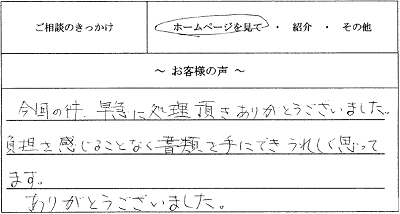 ご相談のきっかけ
ホームページを見て ・ 紹介 ・ その他
～ お客様の声 ～
今回の件、早急に処理頂きありがとうございました。
負担を感じることなく書類を手にできうれしく思って
ます。
ありがとうございました。